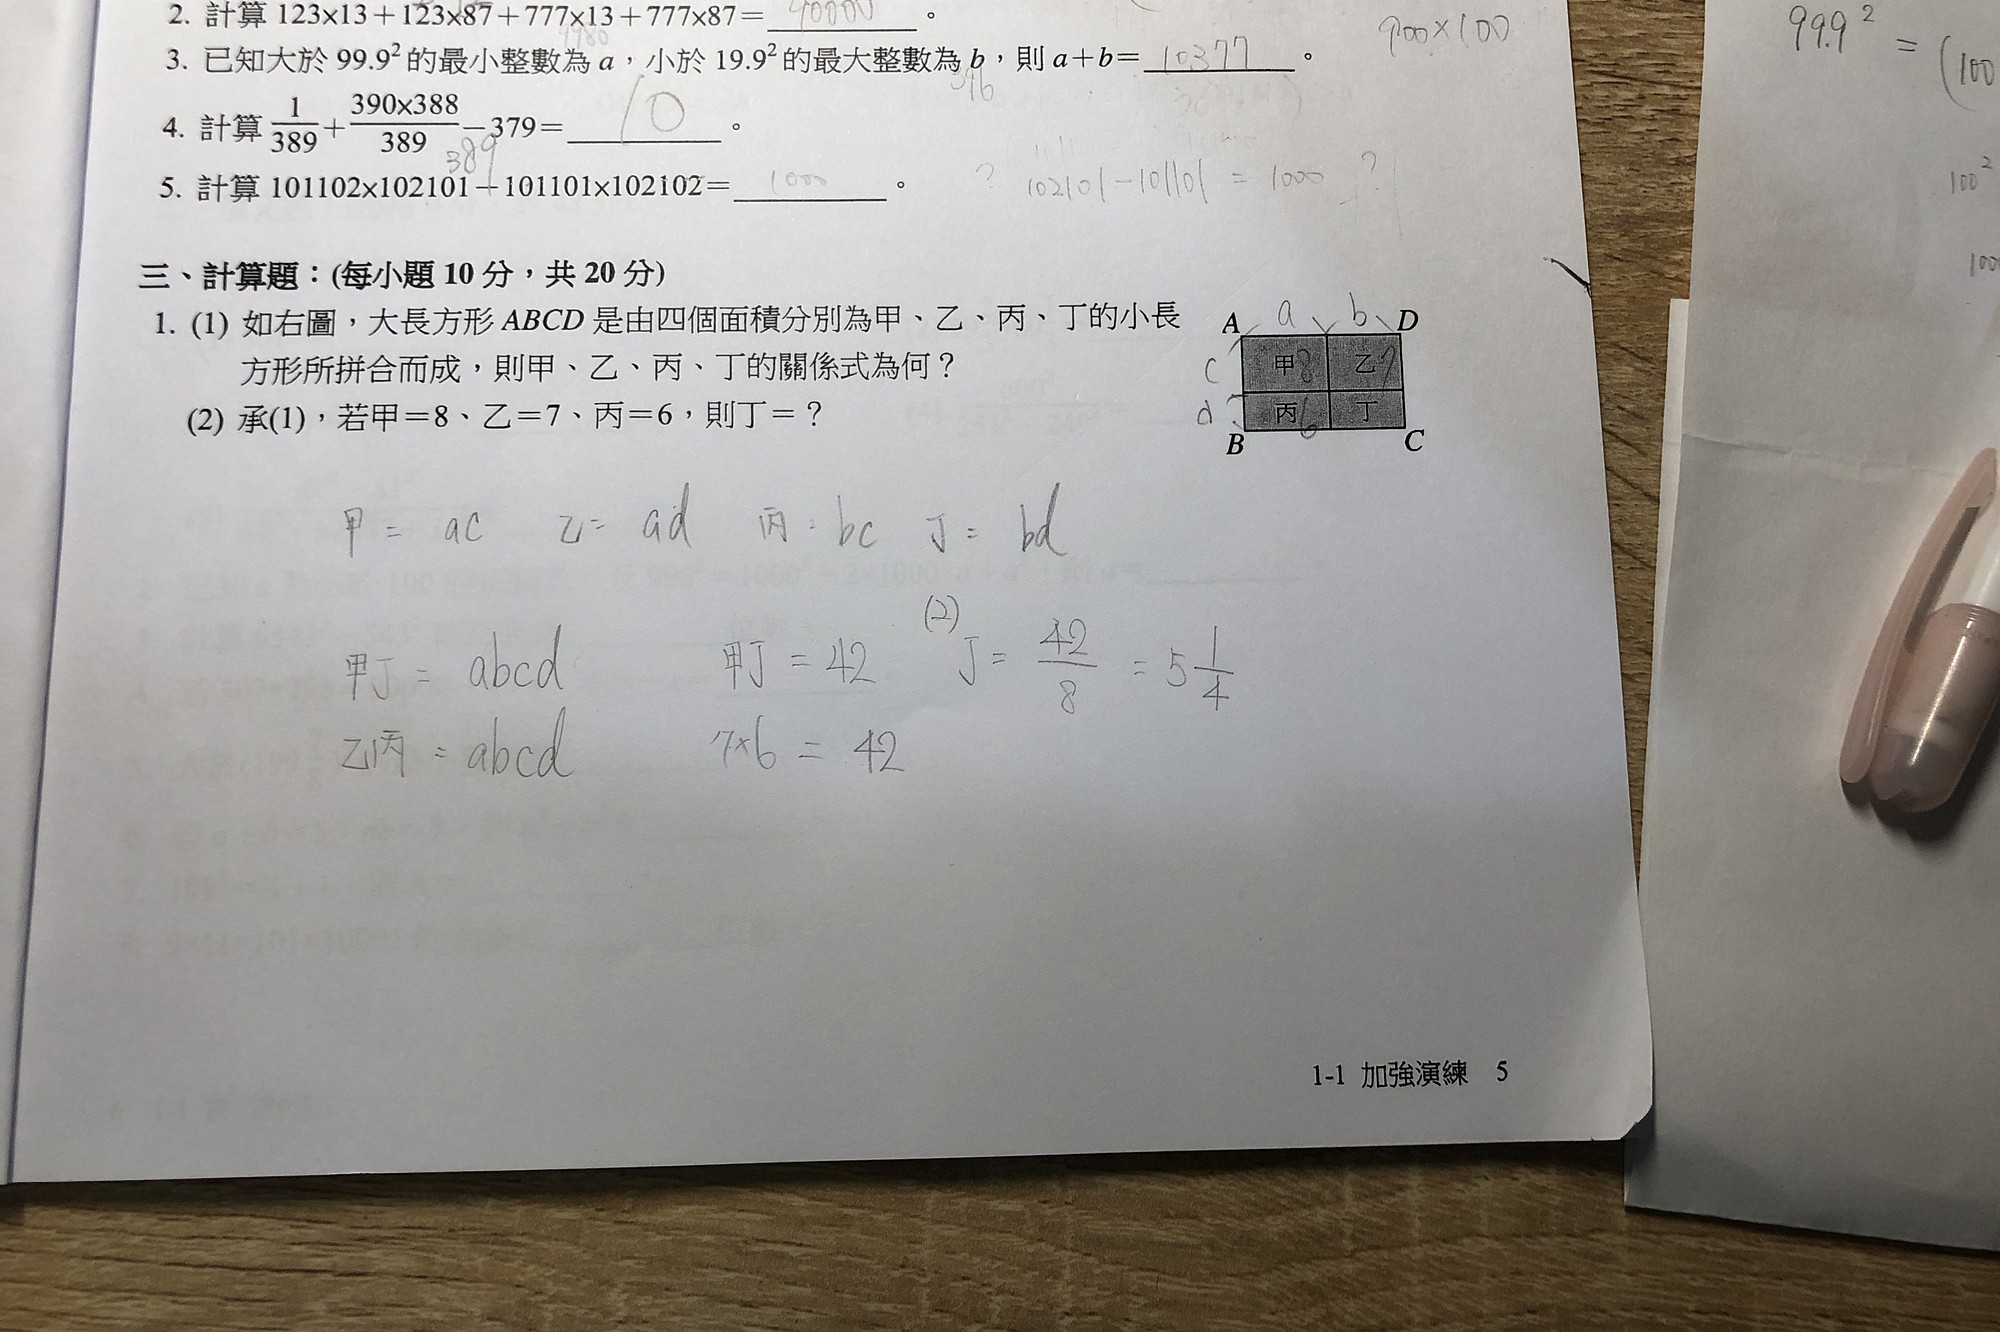 2. 計算 123×13＋123×87＋777×13＋777×87＝ 90000 。
900×100
9980
3. 已知大於 99.9²的最小整數為 a，小於 19.9²的最大整數為 b，則 a＋b＝ 10377 。
396
4. 計算 1/389＋390×388/389－379＝ 10 。
389
5. 計算 101102×102101－101101×102102＝ 1000 。
? 102101-101101 = 1000 ?
三、計算題：(每小題 10 分，共 20 分)
1. (1) 如右圖，大長方形 ABCD 是由四個面積分別為甲、乙、丙、丁的小長
方形所拼合而成，則甲、乙、丙、丁的關係式為何？
(2) 承(1)，若甲＝8、乙＝7、丙＝6，則丁＝？
A a b D
c 甲 8 乙 7
d 丙 6 丁
B C
甲 = ac 乙 = ad 丙 = bc 丁 = bd
甲丁 = abcd 甲丁 = 42 (2) 丁 = 42/8 = 5 1/4
乙丙 = abcd 7×6 = 42
1-1 加強演練 5
99.9² = (100
100²
100